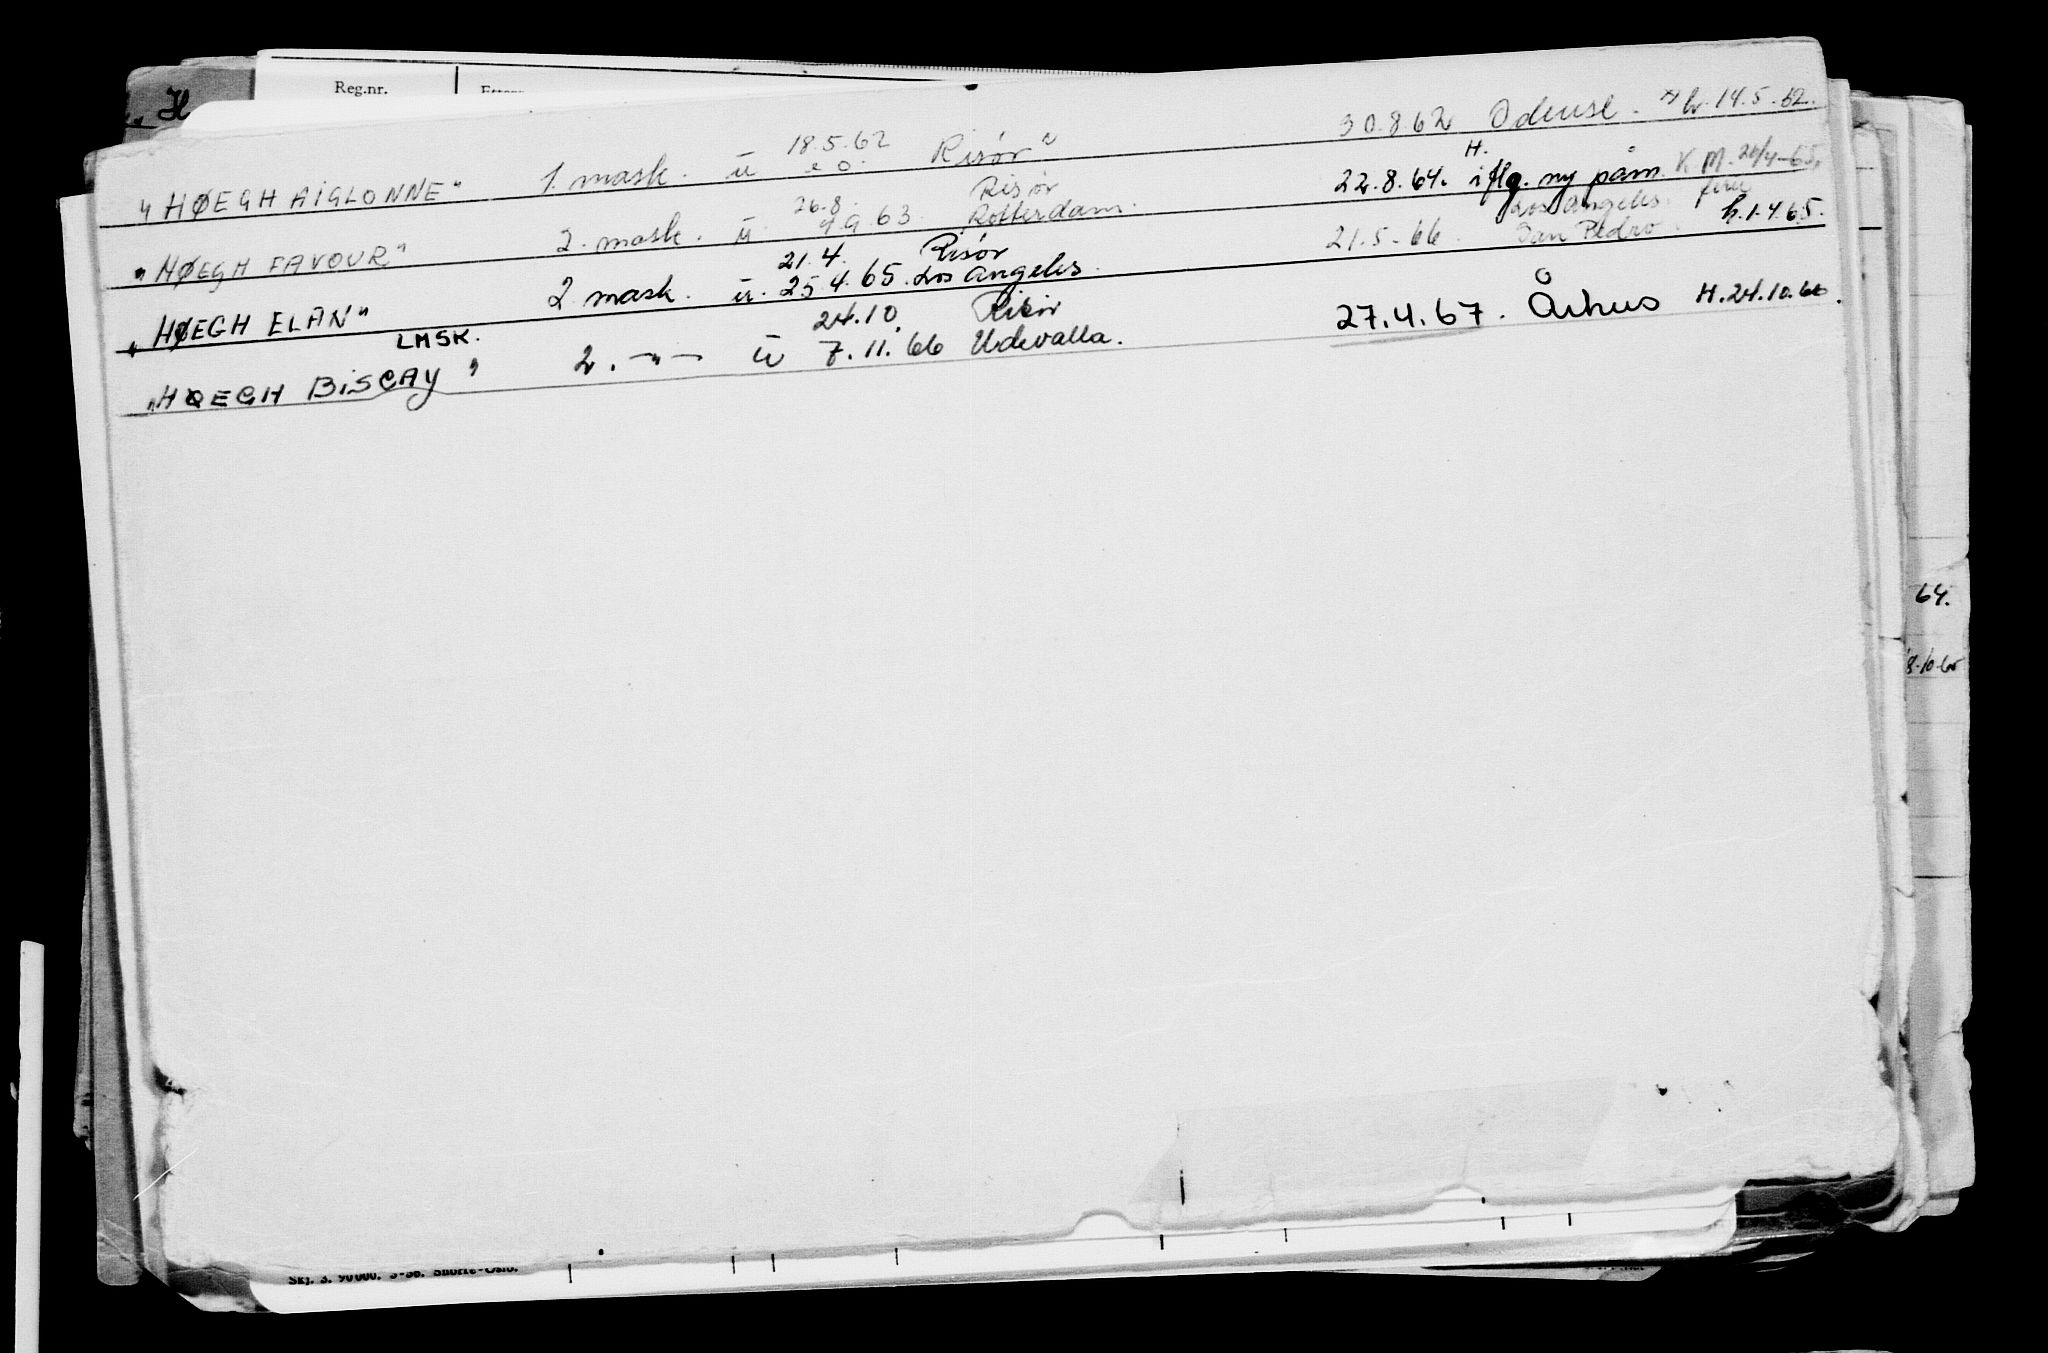 Reg.nr.
"HØEGH AIGLONNE" 1. mask. ū 18.5.62 Risör" 30.8.62 Odense. h. 14.5.62.
"HØEGH FAVOUR" 2. mask. ū. 26.8. Risör 9.9.63. Rotterdam. 22.8.64. H. iflg. ny påm. K M. 20/4-65.
"HØEGH ELAN" 2 mask. ū. 21.4. Risör 25.4.65. Los Angeles. 21.5.66. Los Angeles. San Pedro h.1.4.65.
LMSK.
"HØEGH BISCAY" 2. -"- ū 24.10. Risör 7.11.66 Udevalla. 27.4.67. Århus H.24.10.66.
64.
Skj. 3. 90000.